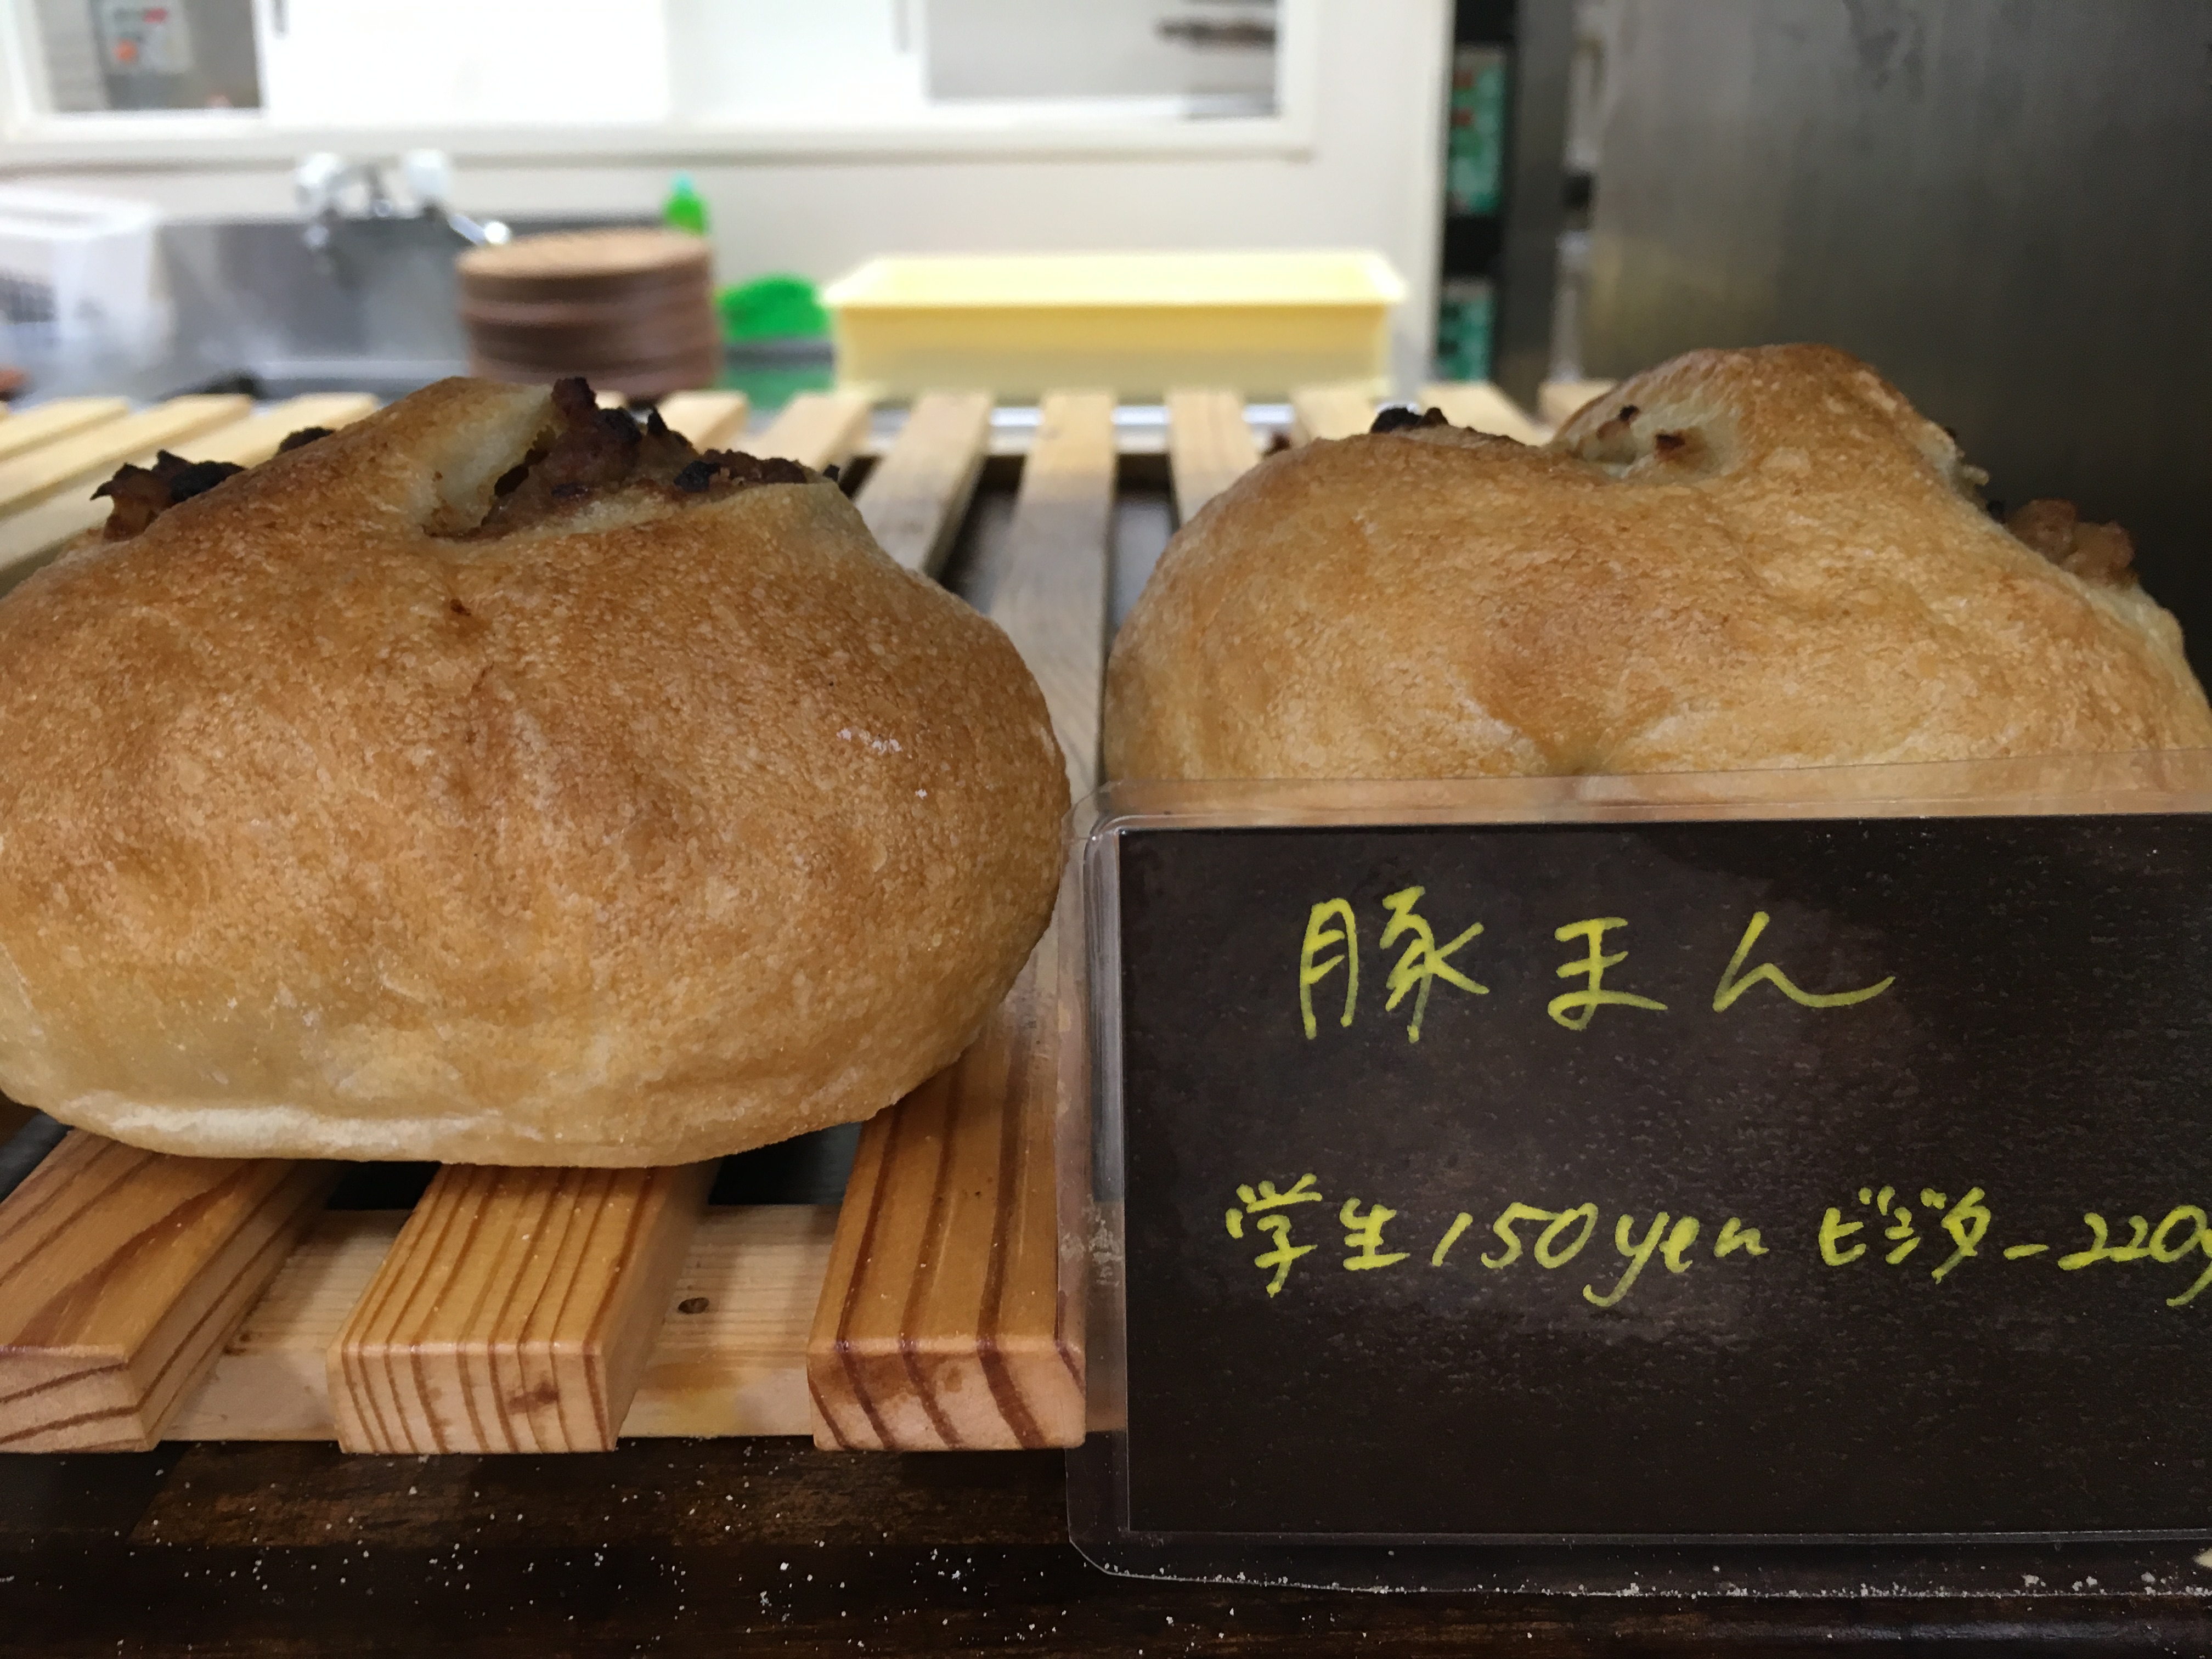 豚まん
学生150yen ビジター220y